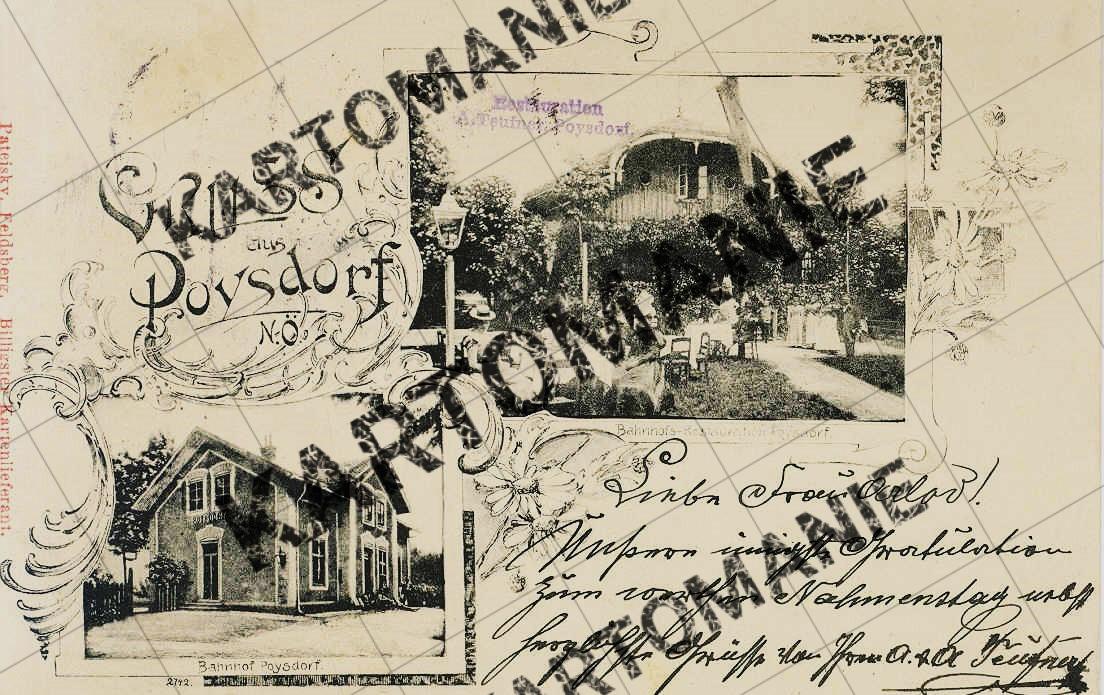 Gruss
aus
Poysdorf
N.Ö.
Restauration
A. Teufner, Poysdorf.
Bahnhofs-Restauration Poysdorf.
Bahnhof Poysdorf.
2742.
Patejsky, Feldsberg. Billigster Kartenlieferant.
Liebe Frau
Unseren innigste Gratulation
zum werthen Nahmenstag nebst
herzlichste Grüsse von Ihren A. & A Teufner
KARTOMANIE
KARTOMANIE
KARTOMANIE
KARTOMANIE